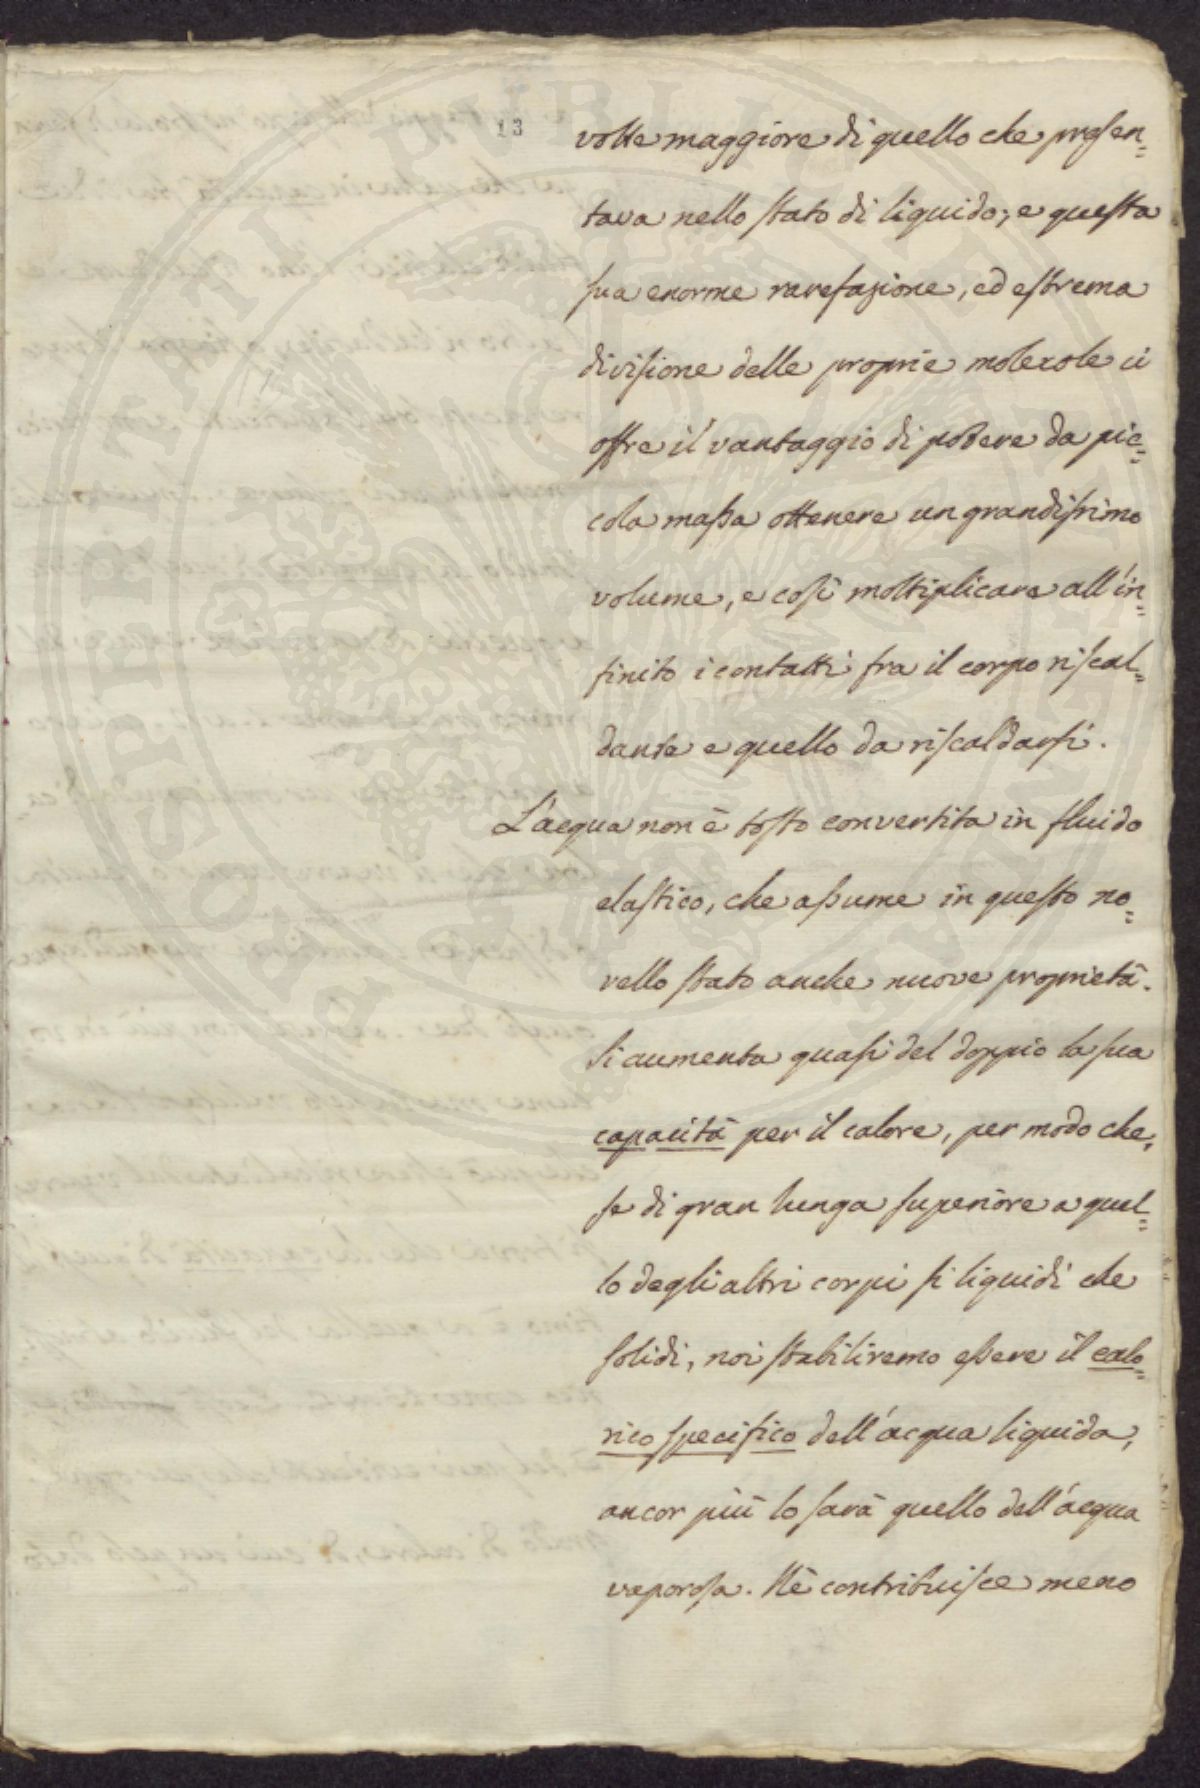 13
volte maggiore di quello che presen=
tava nello stato di liquido; e questa
sua enorme rarefazione, ed estrema
divisione delle proprie molecole ci
offre il vantaggio di potere da pic=
cola massa ottenere un grandissimo
volume, e così moltiplicare all'in=
finito i contatti fra il corpo riscal=
dante e quello da riscaldarsi.
L'acqua non è tosto convertita in fluido
elastico, che assume in questo no=
vello stato anche nuove proprietà.
Si aumenta quasi del doppio la sua
capacità per il calore, per modo che,
se di gran lunga superiore a quel=
lo degli altri corpi si liquidi che
solidi, noi stabiliremo essere il calo=
rico specifico dell'acqua liquida,
ancor più lo sarà quello dell'acqua
vaporosa. Nè contribuisce meno
POSPERITATI PUBLICAE